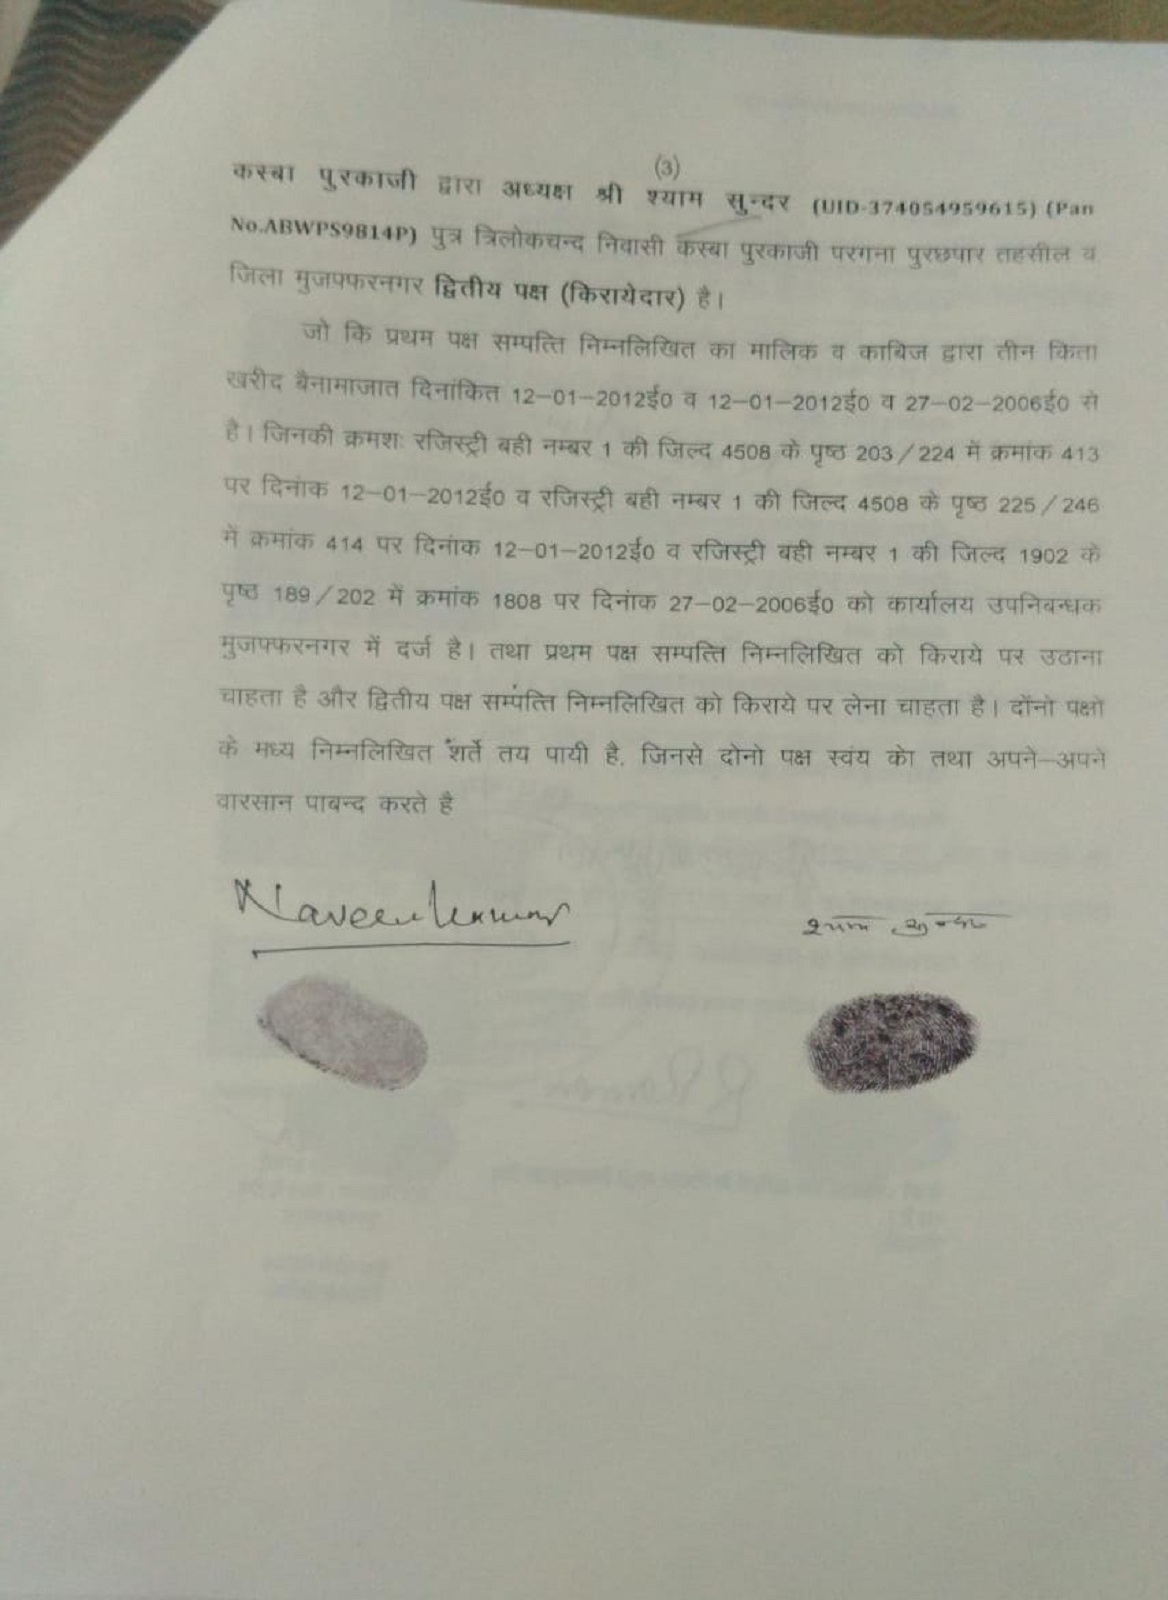 (3)
कस्बा पुरकाजी द्वारा अध्यक्ष श्री श्याम सुन्दर (UID-374054959615) (Pan
No.ABWPS9814P) पुत्र त्रिलोकचन्द निवासी कस्बा पुरकाजी परगना पुरछपार तहसील व
जिला मुजफ्फरनगर द्वितीय पक्ष (किरायेदार) है।
जो कि प्रथम पक्ष सम्पत्ति निम्नलिखित का मालिक व काबिज द्वारा तीन किता
खरीद बैनामाजात दिनांकित 12-01-2012ई0 व 12-01-2012ई0 व 27-02-2006ई0 से
है। जिनकी क्रमशः रजिस्ट्री बही नम्बर 1 की जिल्द 4508 के पृष्ठ 203/224 में क्रमांक 413
पर दिनांक 12-01-2012ई0 व रजिस्ट्री बही नम्बर 1 की जिल्द 4508 के पृष्ठ 225/246
में क्रमांक 414 पर दिनांक 12-01-2012ई0 व रजिस्ट्री बही नम्बर 1 की जिल्द 1902 के
पृष्ठ 189/202 में क्रमांक 1808 पर दिनांक 27-02-2006ई0 को कार्यालय उपनिबन्धक
मुजफ्फरनगर में दर्ज है। तथा प्रथम पक्ष सम्पत्ति निम्नलिखित को किराये पर उठाना
चाहता है और द्वितीय पक्ष सम्पंत्ति निम्नलिखित को किराये पर लेना चाहता है। दोंनो पक्षो
के मध्य निम्नलिखित शर्ते तय पायी है, जिनसे दोनो पक्ष स्वंय केा तथा अपने-अपने
वारसान पाबन्द करते है
Naveen Kumar
श्याम सुन्दर